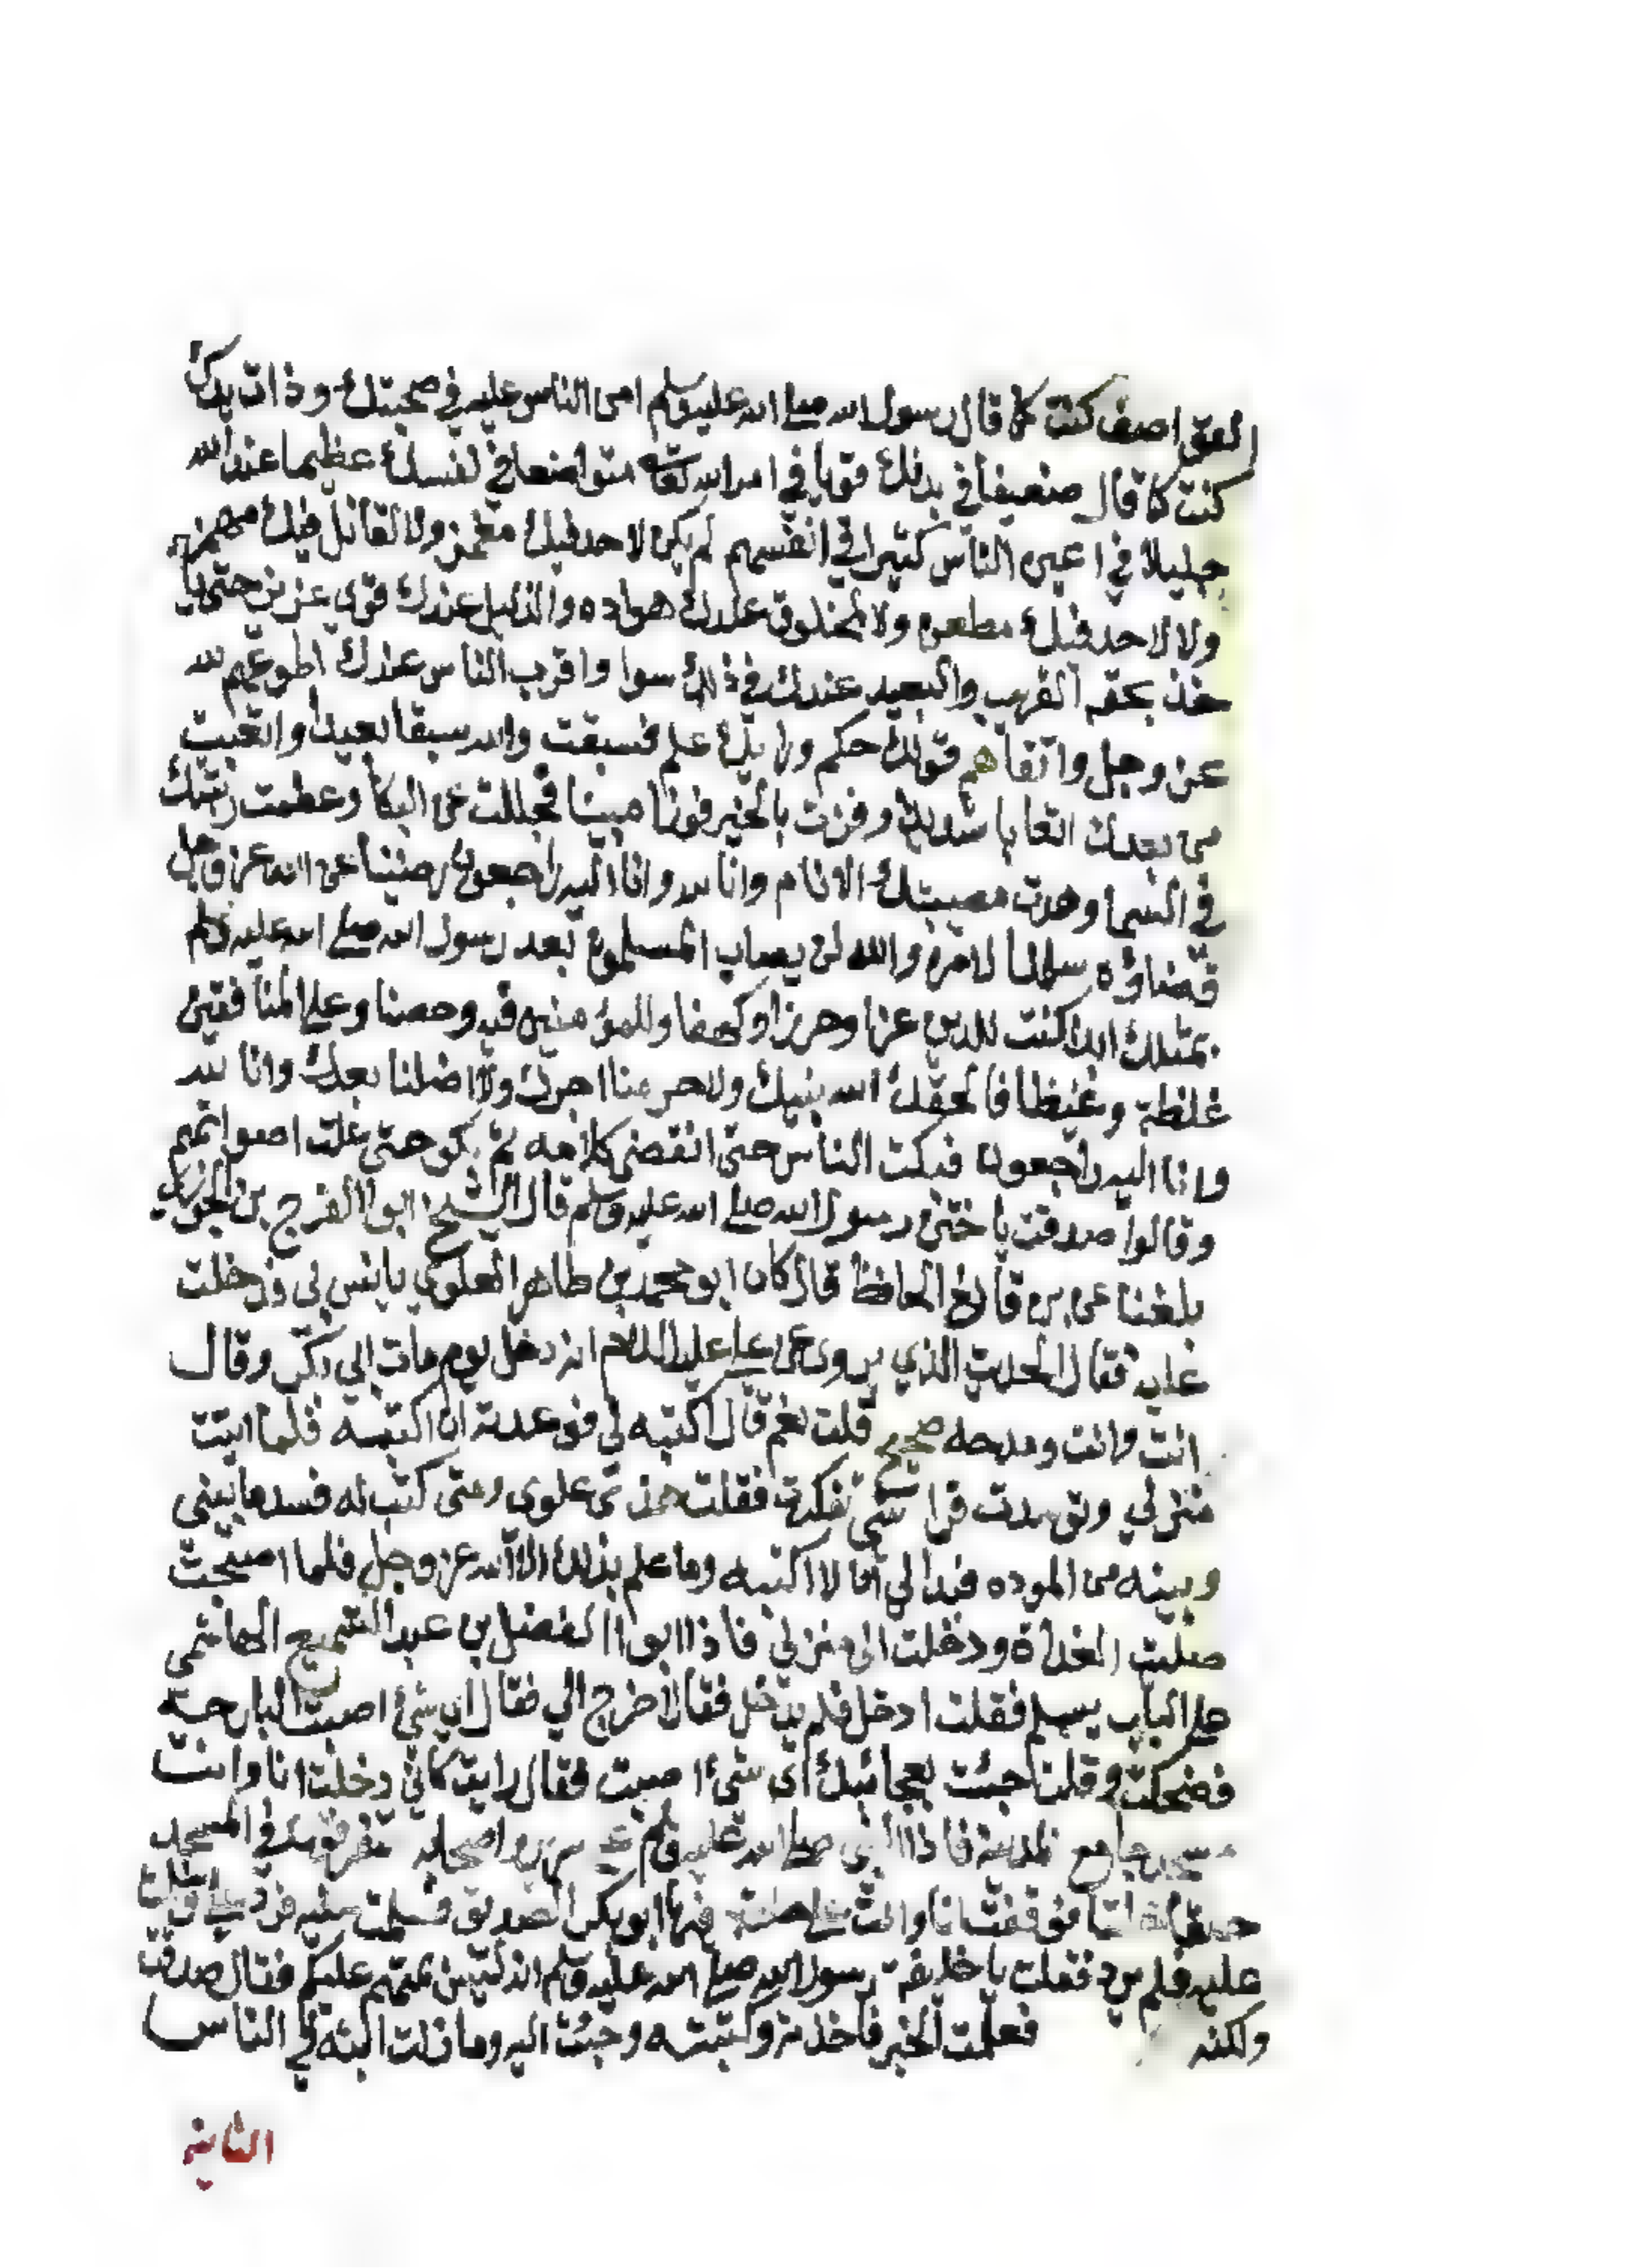 العواصف كنت كما قال رسول الله صلى الله عليه وسلم امن الناس عليه في صحبتك وذات يدك
كنت كما قال ضعيفا في بدنك قويا في امر الله تعالى متواضعا في نفسك عظيما عند الله
جليلا في اعين الناس كبيرا في انفسهم لم يكن لاحد فيك مغمز ولا لقائل فيك مهمز
ولا لاحد فيك مطمع ولا لمخلوق عندك هواده والذليل عندك قوي عزيز حتى يا
خذ بحقه القريب والبعيد عندك في ذلك سوا واقرب الناس عندك اطوعهم لله
عز وجل واتقاهم قولك حكم ورايك علم فسبقت والله سبقا بعيدا واتعبت
من بعدك اتعابا شديدا وفزت بالخير فوزا مبينا فجللت عن البكا وعظمت رزيتك
في السما وهدت مصيبتك الانام وانا لله وانا اليه راجعون رضينا عن الله عز وجل
قضاؤه وسلمنا لامره والله لن يصاب المسلمون بعد رسول الله صلى الله عليه وسلم
بمثلك ابدا كنت للدين عزا وحرزا وكهفا وللمؤمنين فيه وحصنا وعلى المنافقين
غلظة وغيظا فالحقك الله بنبيك ولا حرمنا اجرك ولا اضلنا بعدك وانا لله
وانا اليه راجعون فسكت الناس حتى انقضى كلامه ثم بكو حتى علت اصواتهم
وقالوا صدقت يا ختن رسول الله صلى الله عليه وسلم قال الشيخ ابو الفرج بن الجوزي
بلغنا عن بن قانع الحافظ قال كان ابو محمد بن طاهر العلوي يانس بي فدخلت
عليه فقال الحديث الذي يروى عن علي عليه السلام انه دخل يوم مات ابي بكر وقال
انت وانت ومدحه صحيح قلت نعم قال اكتبه لي فوعدته ان اكتبه فلما اتيت
منزلي وتوسدت فراشي تفكرت فقلت هذا علوي ومتى كتب له فسد ما بيني
وبينه من الموده فبدا لي ان لا اكتبه وما علم بذلك الا الله عز وجل فلما اصبحت
صليت الغداة ودخلت الى منزلي فاذا ابو الفضل بن عبد السميع الهاشمي
على الباب يسلم فقلت ادخل فلم يدخل فقال اخرج الي فقال اي شئ اصبت البارحه
فضحكت وقلت جئت بعجائبك اي شئ اصبت فقال رايت كاني دخلت انا وانت
مسجد جامع المدينة فاذا النبي صلى الله عليه وسلم على سرير واصحابه متفرقون في المسجد
حلقا حلقا فوقفت انا وانت على حلقة فيها ابو بكر الصديق فسلمت عليه فرد علي وسلمت
عليه فلم يرد فقلت يا خليفة رسول الله صلى الله عليه وسلم فقال صدقت
ولكنه فعلمت الخبر فاخذته وكتبته وجئت اليه وما زلت ابثه في الناس
الثانية